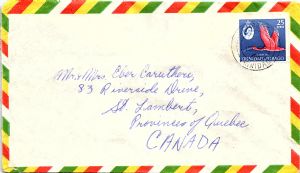 25
TRINIDAD & TOBAGO
Mr. & Mrs. Eber Caruthers,
83 Riverside Drive,
St. Lambert,
Provinces of Quebec
CANADA